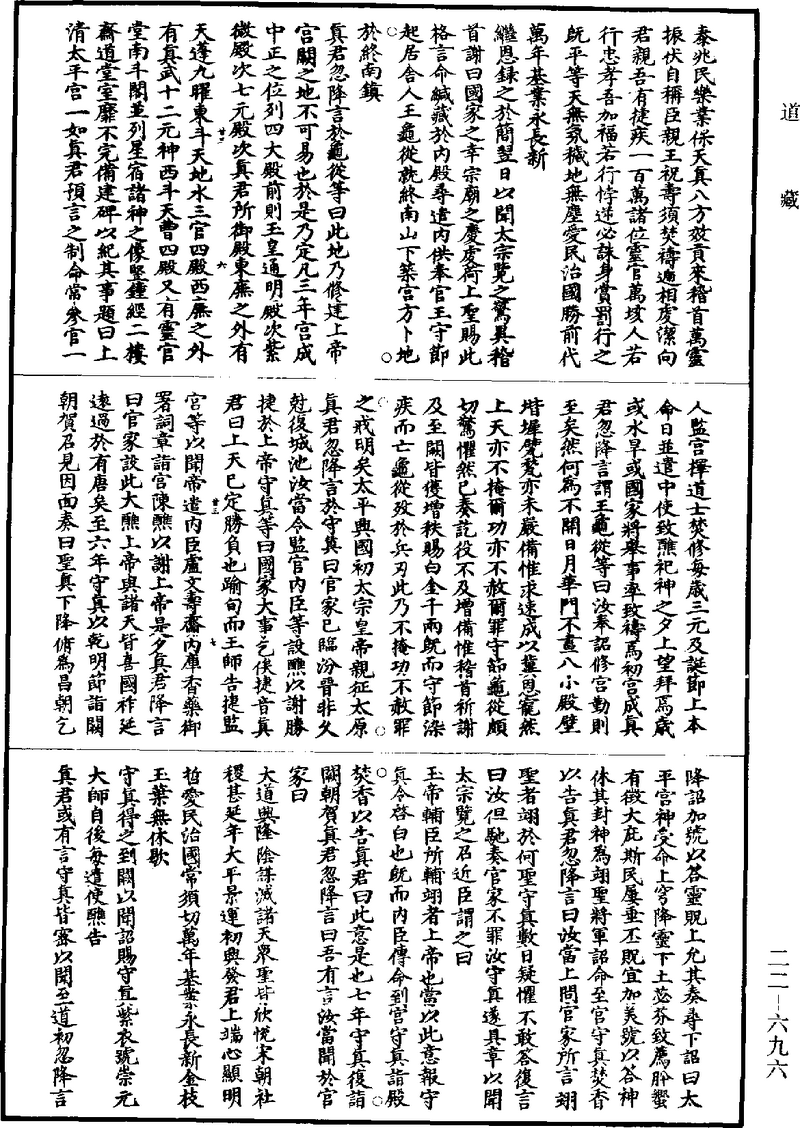 道藏
秦兆民樂業保天真八方效貢來稽首萬靈
振伏自稱臣親王祝壽須焚禱遞相虔潔向
君親吾有捷疾一百萬諸位靈官萬垓人若
行忠孝吾加福若行悖逆必誅身賞罰行之
旣平等天無氛穢地無塵愛民治國勝前代
萬年基業永長新
繼恩錄之於簡翌日以聞太宗覽之驚異稽
首謝曰國家之幸宗廟之慶虔荷上聖賜此
格言命緘藏於內殿尋遣內供奉官王守節
起居舍人王龜從就終南山下築宮方卜地
於終南鎮
眞君忽降言於龜從等曰此地乃修建上帝
宮闕之地不可易也於是乃定凡三年宮成
中正之位列四大殿前則玉皇通明殿次紫
微殿次七元殿次真君所御殿東廡之外有
天蓬九曜東斗天地水三官四殿西廡之外
有真武十二元神西斗天曹四殿又有靈官
堂南斗閣並列星宿諸神之像堅鍾經二樓
齋道堂室靡不完備建碑以紀其事題曰上
清太平宮一如真君預言之制命常參官一
人監宮擇道士焚修每歲三元及誕節上本
命日並遣中使致醮祀神之夕上望拜焉歲
或水旱或國家將舉事率致禱焉初宮成真
君忽降言謂王龜從等曰汝奉詔修宮勤則
至矣然何爲不開日月華門不畫八小殿壁
堦墀甓甃亦未嚴備惟求速成以冀恩寵然
上天亦不掩爾功亦不赦爾罪守節龜從頗
切驚懼然已奏訖役不及增備惟稽首祈謝
及至闕皆優增秩賜白金千兩旣而守節染
疾而亡龜從歿於兵刃此乃不掩功不赦罪
之戒明矣太平興國初太宗皇帝親征太原
眞君忽降言於守真曰官家已臨汾晉非久
尅復城池汝當令監官內臣等設醮以謝勝
捷於上帝守真等曰國家大事乞俟捷音真
君曰上天已定勝負也踰旬而王師告捷監
宮等以聞帝遣內臣盧文壽齋內庫香藥御
署詞章詣宮陳醮以謝上帝是夕真君降言
曰官家設此大醮上帝與諸天皆喜國祚延
遠過於有唐矣至六年守真以乾明節詣闕
朝賀召見因面奏曰聖真下降俯爲昌朝乞
降詔加號以荅靈貺上允其奏尋下詔曰太
平宮神受命上穹降靈下土苾芬致薦肸蠁
有徵大庇斯民屢垂丕貺宜加美號以荅神
休其封神爲翊聖將軍詔命至宮守真焚香
以告真君忽降言曰汝當上問官家所言翊
聖者翊於何聖守真數日疑懼不敢荅復言
曰汝但馳奏官家不罪汝守真遂具章以聞
太宗覽之召近臣謂之曰
玉帝輔臣所輔翊者上帝也當以此意報守
真令啓白也旣而內臣傳命到宮守真詣殿
焚香以告真君曰此意是也七年守真復詣
闕朝賀真君忽降言曰吾有言汝當聞於官
家曰
大道興隆陰謀滅諸天衆聖皆欣悅宋朝社
稷甚延年太平景運初興發君上端心顯明
哲愛民治國常須切萬年基業永長新金枝
玉葉無休歇
守真得之到闕以聞詔賜守真紫衣號崇元
大師自後每遣使醮告
眞君或有言守真皆密以聞至道初忽降言
二二-六九六